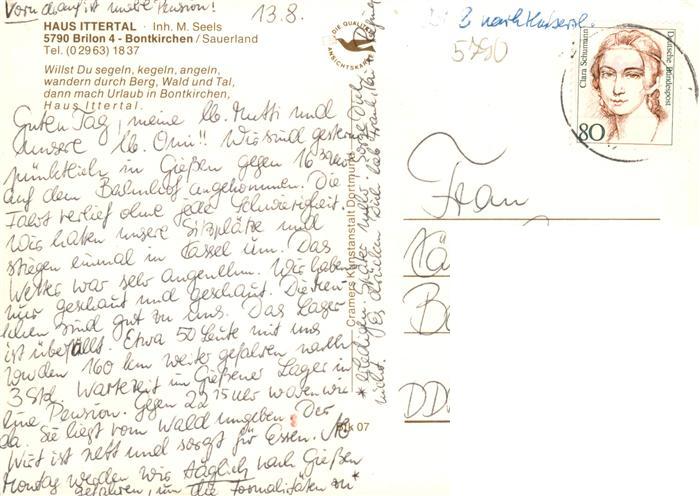 Vorn drauf ist unsere Pension!
13.8.
HAUS ITTERTAL · Inh. M. Seels
5790 Brilon 4 - Bontkirchen / Sauerland
Tel. (0 29 63) 18 37
Willst Du segeln, kegeln, angeln,
wandern durch Berg, Wald und Tal,
dann mach Urlaub in Bontkirchen,
Haus Ittertal.
Guten Tag, meine lb. Mutti und
unsere lb. Omi!! Wir sind gestern
pünktlich in Gießen gegen 16³⁰ Uhr
auf dem Bahnhof angekommen. Die
Fahrt verlief ohne jede Schwierigkeit.
Wir hatten unsere Sitzplätze und
stiegen einmal in Kassel um. Das
Wetter war sehr angenehm. Wir haben
nur geschaut und geschaut. Die Men-
schen sind gut zu uns. Das Lager
ist überfüllt. Etwa 50 Leute mit uns
wurden 160 km weiter gefahren nach
3 Std. Wartezeit im Gießener Lager in
eine Pension. Gegen 22¹⁵ Uhr waren wir
da. Sie liegt vom Wald umgeben. Der
Wirt ist nett und sorgt für Essen. Ab
Montag werden wir täglich nach Gießen
gefahren, um die Formalitäten zu*
Cramers Kunstanstalt Dortmund
Brk 07
DIE QUALITÄTS
ANSICHTSKARTE
5790
Clara Schumann
Deutsche Bundespost
80
Frau
Kä
Be
DD